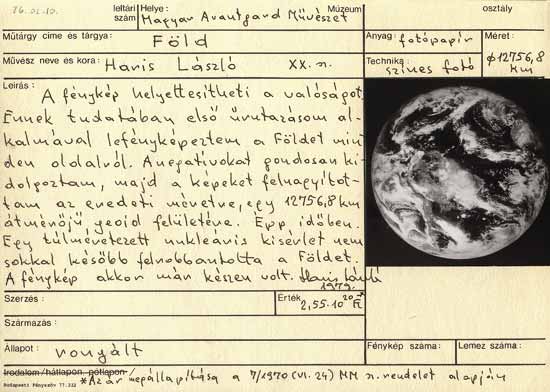 76.01.10.
leltári szám
Helye: Magyar Avantgard Művészet Múzeum
osztály
Műtárgy címe és tárgya: Föld
Anyag: fotópapír
Méret: ϕ12756,8 km
Művész neve és kora: Haris László XX. sz.
Technika: színes fotó
Leírás: A fénykép helyettesítheti a valóságot.
Ennek tudatában első űrutazásom al-
kalmával lefényképeztem a Földet min
den oldalról. A negatívokat gondosan ki
dolgoztam, majd a képeket felnagyítot-
tam az eredeti méretre, egy 12756,8 km
átmérőjű geoid felületére. Épp időben.
Egy túlméretezett nukleáris kísérlet nem
sokkal később felrobbantotta a Földet.
A fénykép akkor már készen volt. Haris László
1979.
Szerzés:
Érték 2,55·10²⁰ Ft*
Származás:
Állapot: rongált
Fénykép száma:
Lemez száma:
Irodalom/hátlapon, pótlapon/
*Az ár megállapítása a 7/1970 (VI. 24) MM sz. rendelet alapján